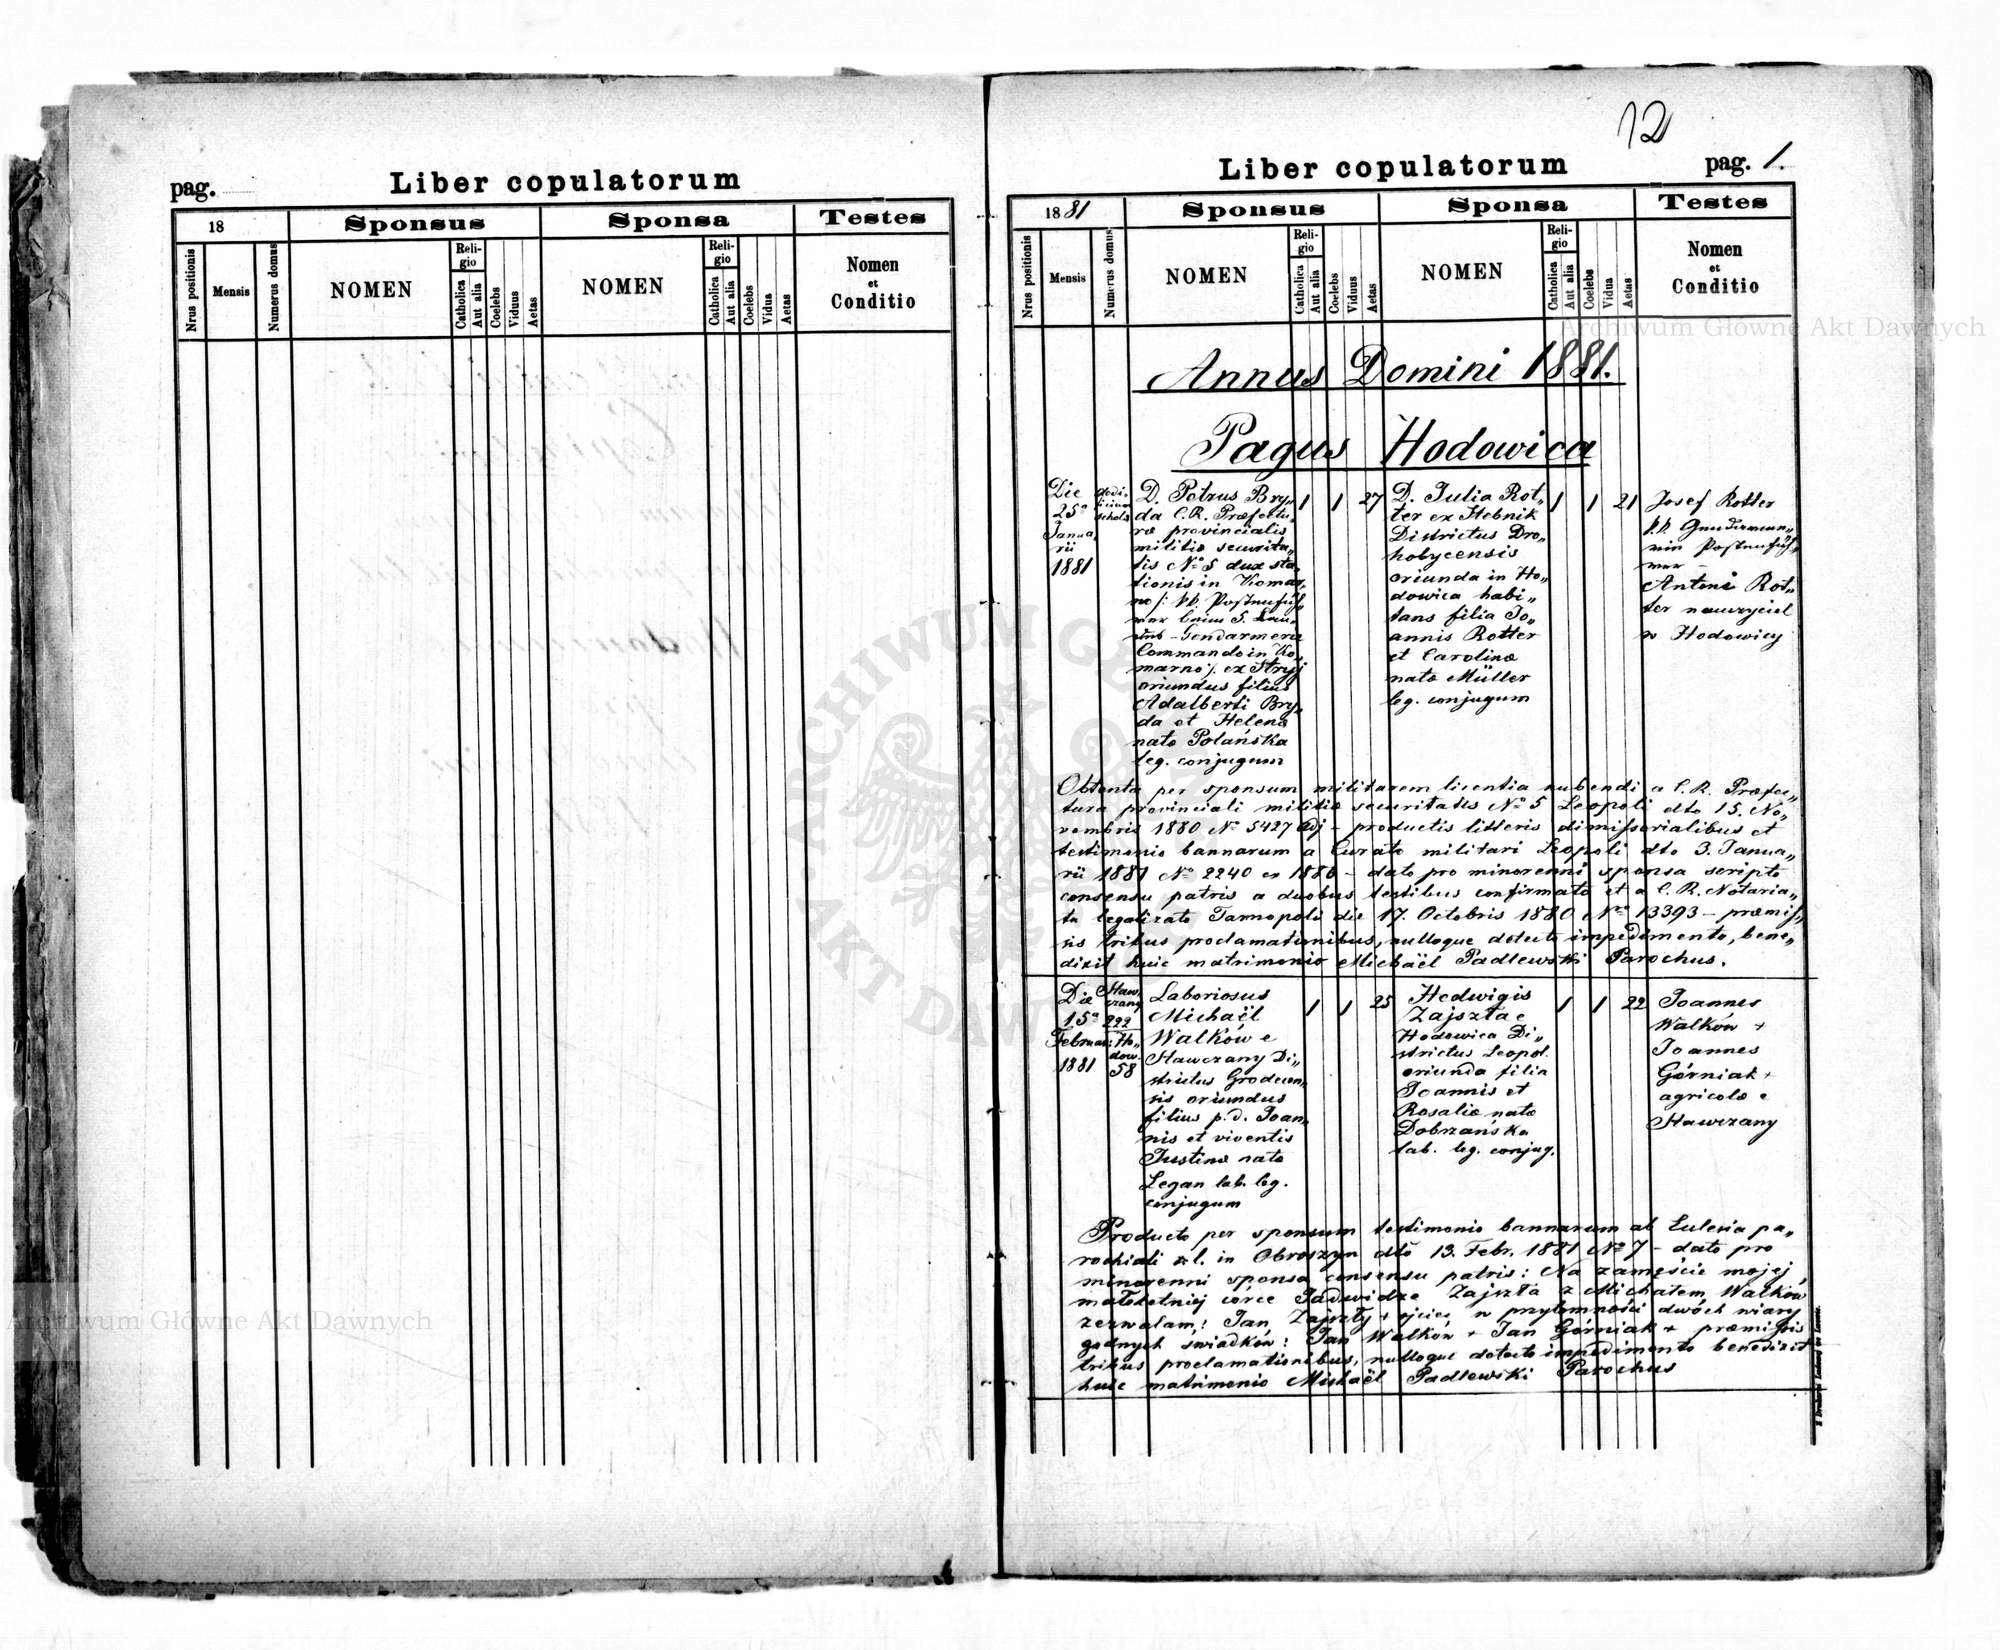 pag.
Liber copulatorum
18
Sponsus
Sponsa
Testes
Nrus positionis
Mensis
Numerus domus
NOMEN
Religio
Catholica
Aut alia
Coelebs
Viduus
Aetas
NOMEN
Religio
Catholica
Aut alia
Coelebs
Vidua
Aetas
Nomen
et
Conditio
12
Liber copulatorum
pag. 1.
1881
Sponsus
Sponsa
Testes
Nrus positionis
Mensis
Numerus domus
NOMEN
Religio
Catholica
Aut alia
Coelebs
Viduus
Aetas
NOMEN
Religio
Catholica
Aut alia
Coelebs
Vidua
Aetas
Nomen
et
Conditio
Annus Domini 1881.
Pagus Hodowica
Die
25a
Janua,,
rii
1881
D. Petrus Bry,,
da C. R. Præfectu,,
ræ provincialis
militiæ securita,,
tis No 5 dux sta,,
tionis in Komar,,
no
Gendarmerie
Commando in Ko,,
marno /. ex Stryj
oriundus filius
Adalberti Bry,,
da et Helenæ
natæ Polańska
leg. conjugum
1 1 27
D. Julia Rot,,
ter ex Hebnik
Districtus Dro,,
hobycensis
oriunda in Ho,,
dowica habi,,
tans filia Jo,,
annis Rotter
et Carolinæ
natæ Müller
leg. conjugum
1 1 21
Josef Rotter
Antoni Rot,,
ter nauczyciel
w Hodowicy
Obtenta per sponsum militarem licentia nubendi a C. R. Præfec,,
tura provinciali militiæ securitatis No 5 Leopoli dto 15. No,,
vembris 1880 No 5427 Adj – productis litteris dimissorialibus et
testimonio bannorum a Curato militari Leopoli dto 3. Janua,,
rii 1881 No 2240 ex 1880 – dato pro minorenni sponsa scripto
consensu patris a duobus testibus confirmato et a C. R. Notaria,,
tu legalizato Tarnopoli die 17. Octobris 1880 No 13393 – præmis,,
sis tribus proclamationibus, nulloque detecto impedimento, bene,,
dixit huic matrimonio Michaël Padlewski Parochus.
Die
15a
Februar:
1881
Staw,,
czany
222
Ho,,
dow.
58
Laboriosus
Michaël
Walków e
Stawczany Di,,
strictus Grodecen,,
sis oriundus
filius p. d. Joan,,
nis et viventis
Justinæ natæ
Legan lab. leg.
conjugum
1 1 25
Hedwigis
Zajszła e
Hodowica Di,,
strictus Leopol.
oriunda filia
Joannis et
Rosaliæ natæ
Dobrzańska
lab. leg. conjug.
1 1 22
Joannes
Walków +
Joannes
Górniak +
agricolæ e
Stawczany
Producto per sponsum testimonio bannorum ab Ecclesia pa,,
rochiali r. l. in Obroszyn dto 13. Febr. 1881 No 7 – dato pro
minorenni sponsa consensu patris: Na zamęście mojej
małoletniej córce Jadwidze Zajszła z Michałem Walków
zezwalam: Jan Zajszły + ojciec, w przytomności dwóch wiary
godnych świadków: Jan Walków + Jan Górniak + præmissis
tribus proclamationibus, nulloque detecto impedimento benedixit
huic matrimonio Michaël Padlewski Parochus
Archiwum Główne Akt Dawnych
Archiwum Główne Akt Dawnych
ARCHIWUM GŁÓWNE AKT DAWNYCH